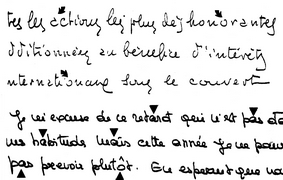 les actions les plus deshonorantes
dditionnées au bénéfice d'intérêts
nternationaux sous le couvert
Je m'excuse de ce retard qui n'est pas da
mes habitude mais cette année je ne pouva
pas prevoir plutôt. En esperant que vo